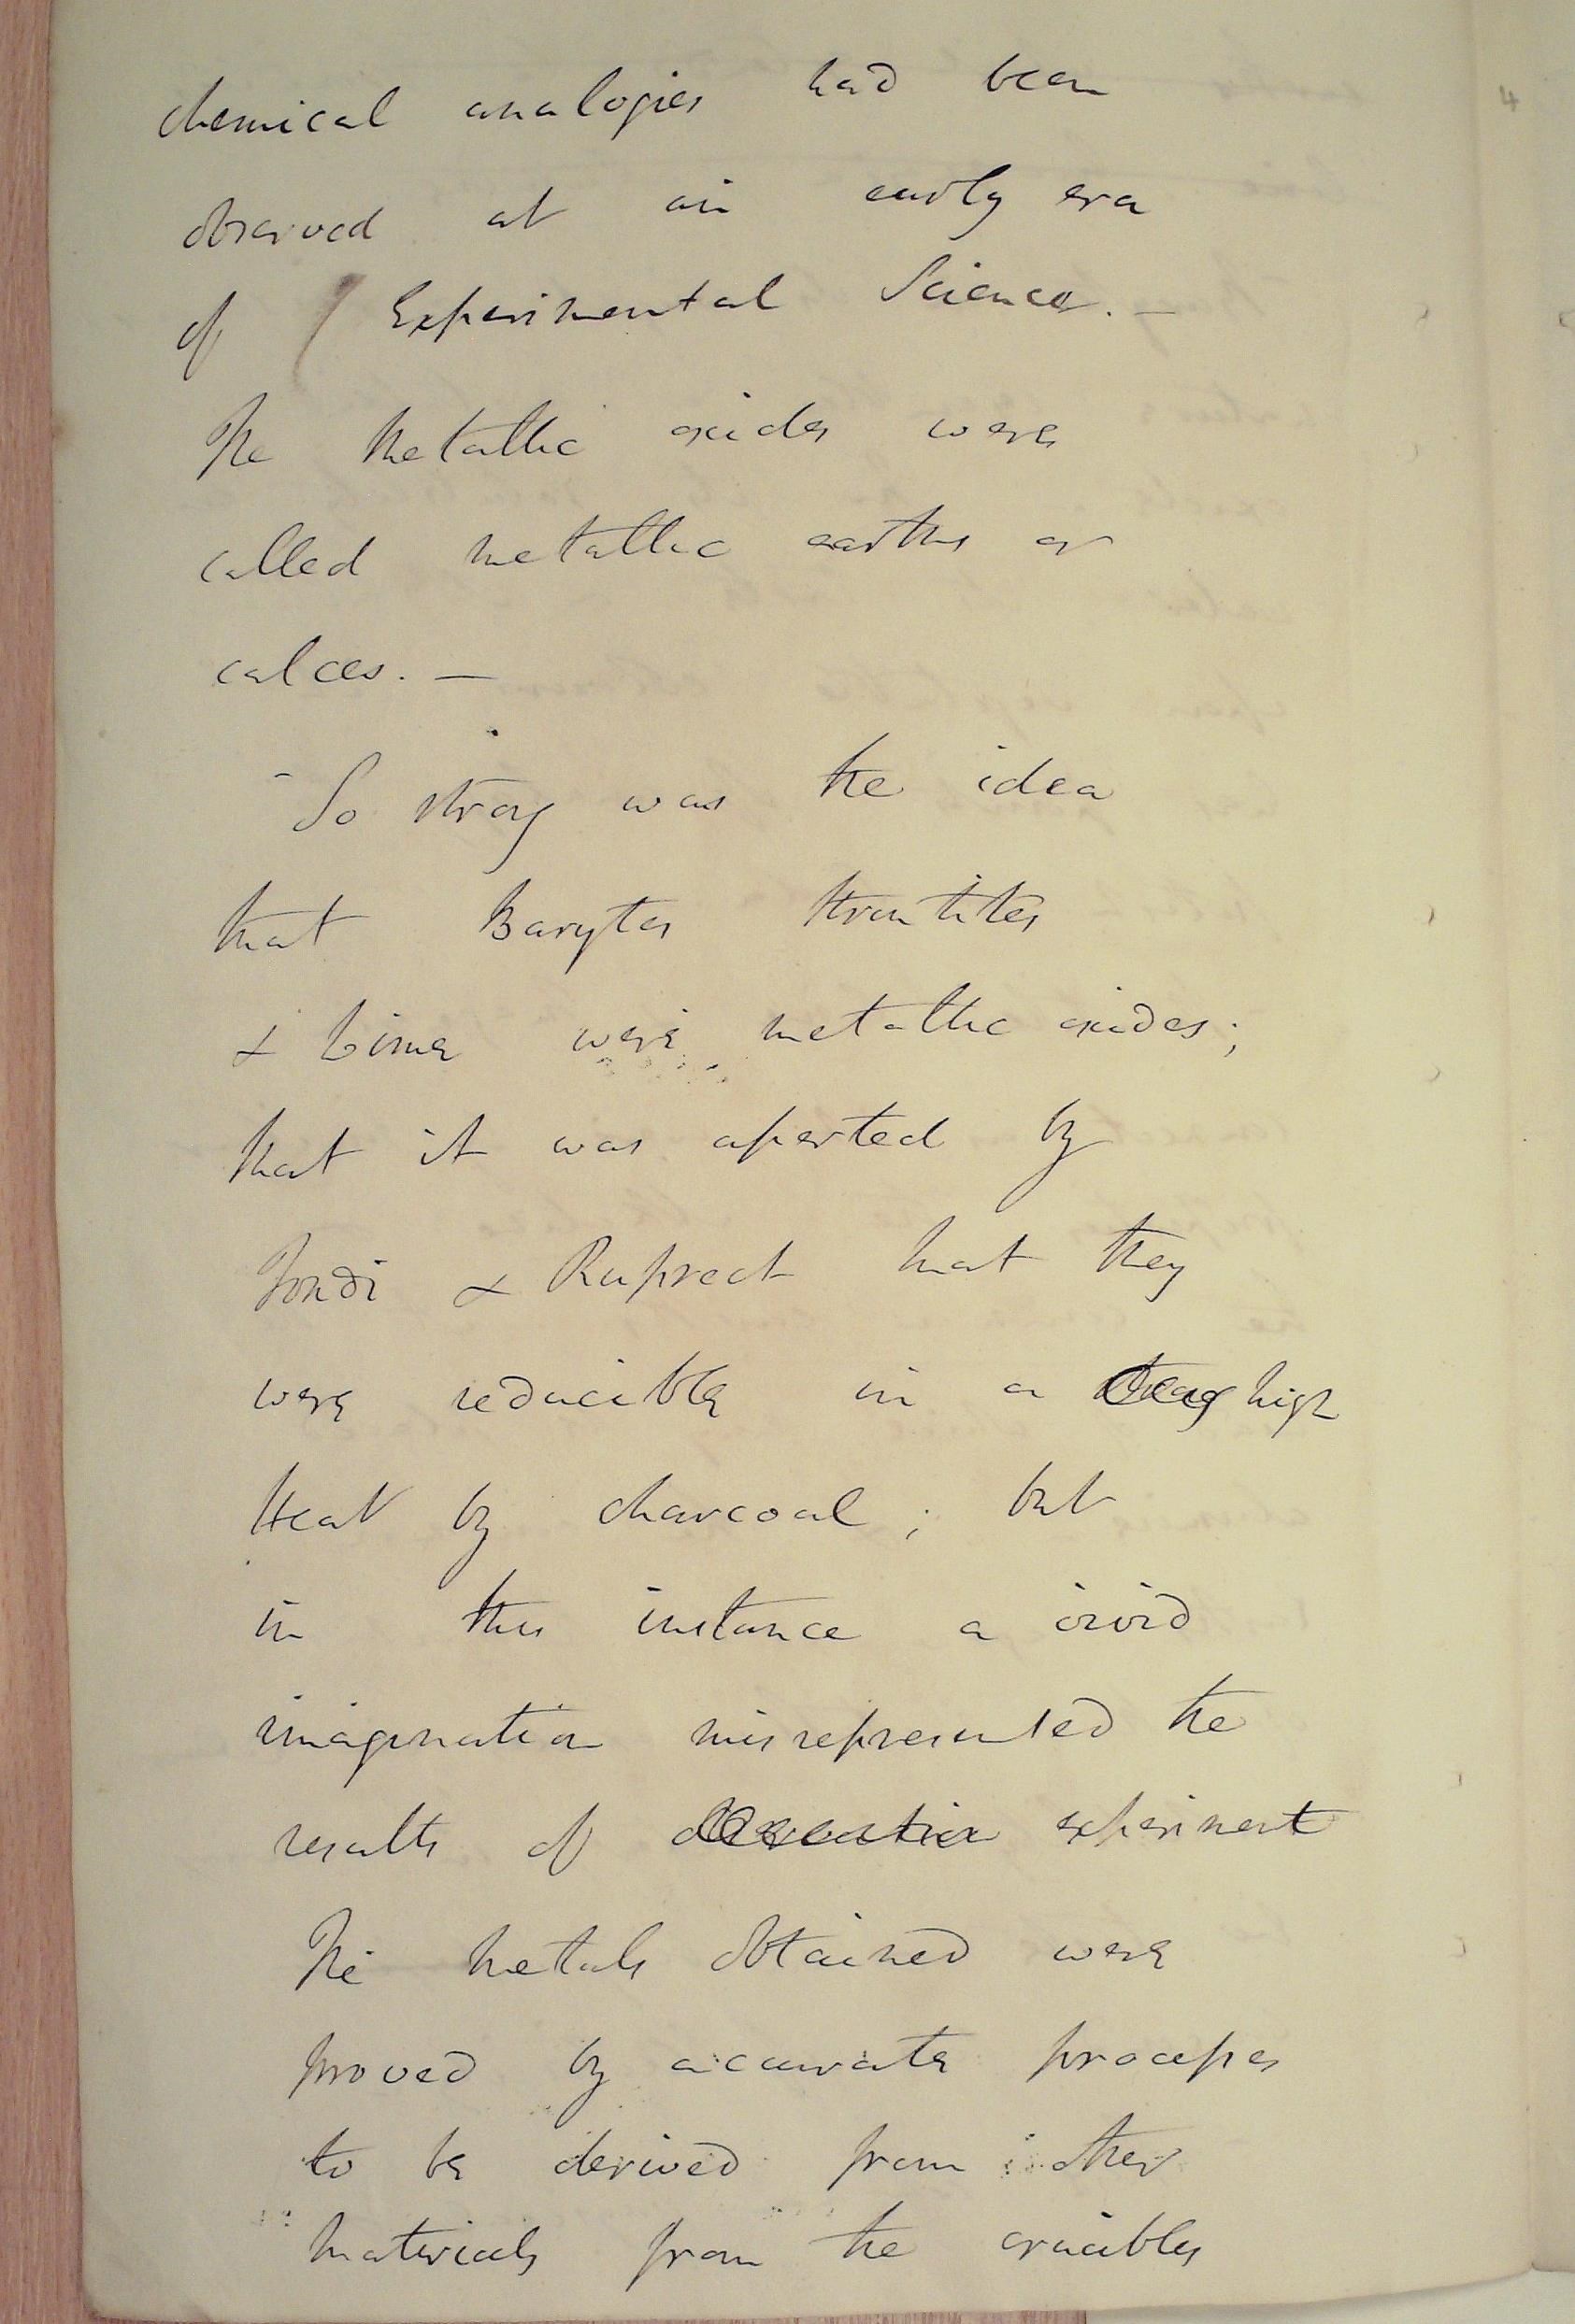 chemical analogies had been
observed at an early era
of Experimental Science. —
The Metallic oxides were
called metallic earths or
calces. —
- So strong was the idea
that Barytes Strontites
& Lime were metallic oxides;
that it was asserted by
Tondi & Ruprect that they
were reducible in a high
Heat by charcoal; but
in this instance a vivid
imagination misrepresented the
results of experiment
The metals obtained were
proved by accurate processes
to be derived from other
materials from the crucibles
4